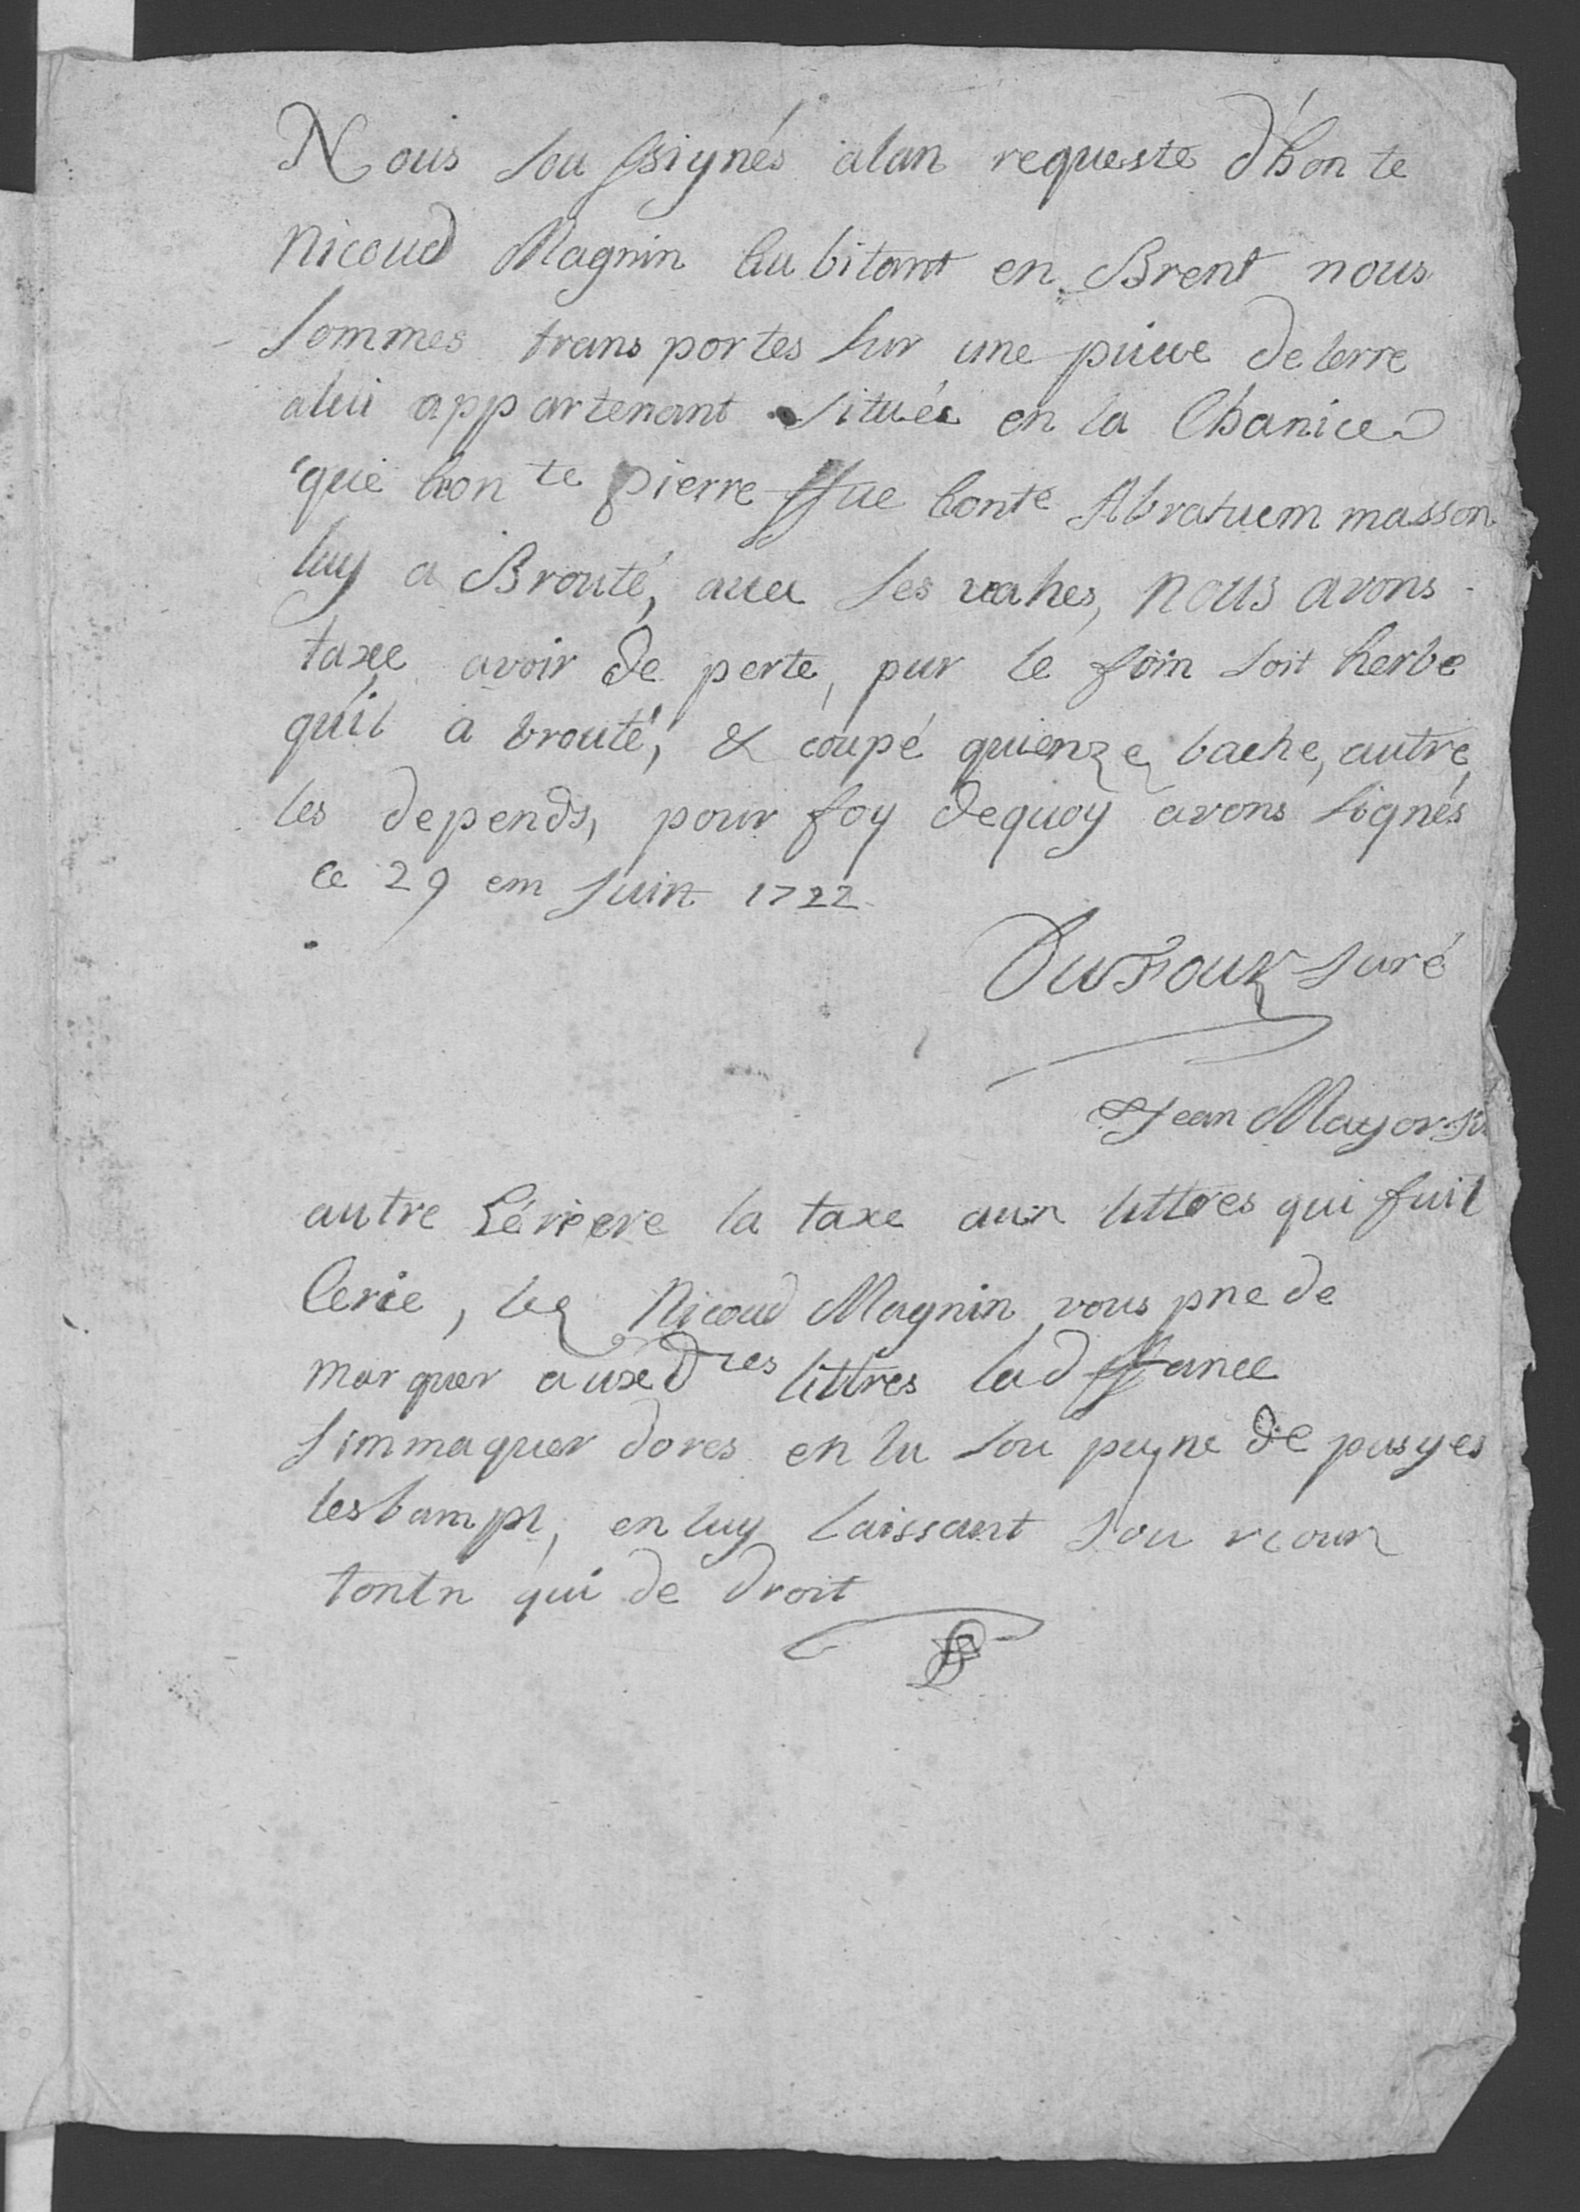 Nous sou ssignés alan requeste d'hon te
Nicoud Magnin habitant en Brent nous
sommes trans portes sur une piece de terre
a lui appartenant située en la Chanice
que hon te pierre ffue honte Abrahem masson
luy a Brouté, avec ses vahes, nous avons
taxe avoir de perte, par le foin soit herbe
quil a brouté, & coupé quienze bache, autre
les depends, pour foy dequoy avons signés
ce 29 em Juin 1722
DuFour Juré
& Jean Mayor
autre la taxe aux lettres qui fuit
, les Nicoud Magnin vous prie de
marquer auxe dres lettres la dffance
simmaquer dores en la sou peyne de
les bampt, en luy laissant sou
qui de droit